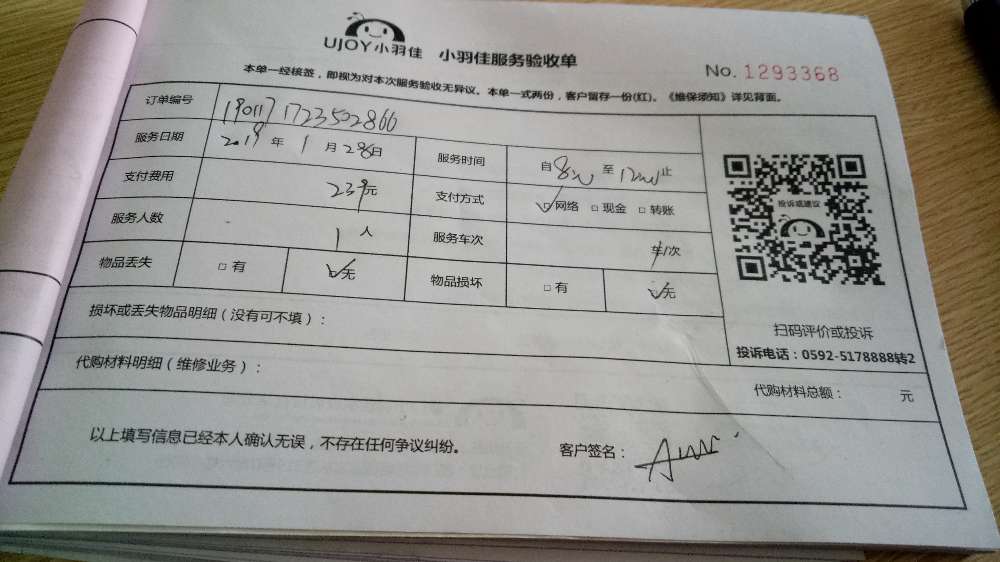 UJOY小羽佳 小羽佳服务验收单
No. 1293368
本单一经核签，即视为对本次服务验收无异议。本单一式两份，客户留存一份(红)。《维保须知》详见背面。
订单编号 190117172350286
服务日期 2019年1月28日 服务时间 自8 至12 止
支付费用 239元 支付方式 ☑网络 □现金 □转账
服务人数 1人 服务车次 车/次
物品丢失 □有 ☑无 物品损坏 □有 ☑无
损坏或丢失物品明细（没有可不填）：
投诉或建议
扫码评价或投诉
投诉电话：0592-5178888转2
代购材料明细（维修业务）：
代购材料总额： 元
以上填写信息已经本人确认无误，不存在任何争议纠纷。
客户签名：